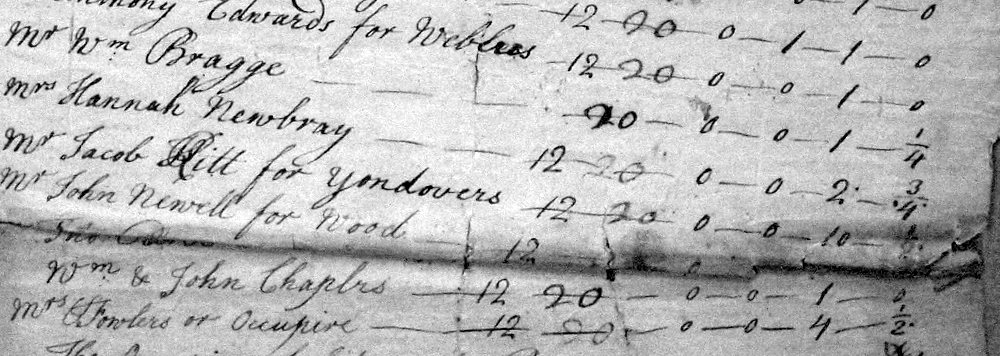 Edwards for Weblies — 12 20 — 0 — 1 — 1 — 0
Mr Wm Bragge — 12 20 — 0 — 0 — 1 — 0
Mrs Hannah Newbray — 20 — 0 — 0 — 1 — 1/4
Mr Jacob Pitt for Yondovers — 12 — 20 — 0 — 0 — 2 — 3/4
Mr John Newell for Wood — 12 — 20 — 0 — 0 — 10
12 — 0
Wm & John Chaplrs — 12 20 — 0 — 0 — 1 — 0
Mrs Fowlers or Occupire — 12 — 20 — 0 — 0 — 4 — 1/2